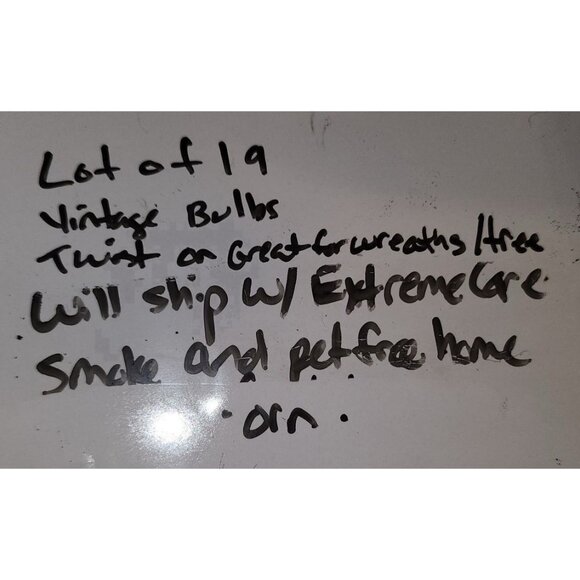 Lot of 19
Vintage Bulbs
Twist on Great for wreaths/tree
will ship w/ Extreme Care
Smoke and pet free home
orn